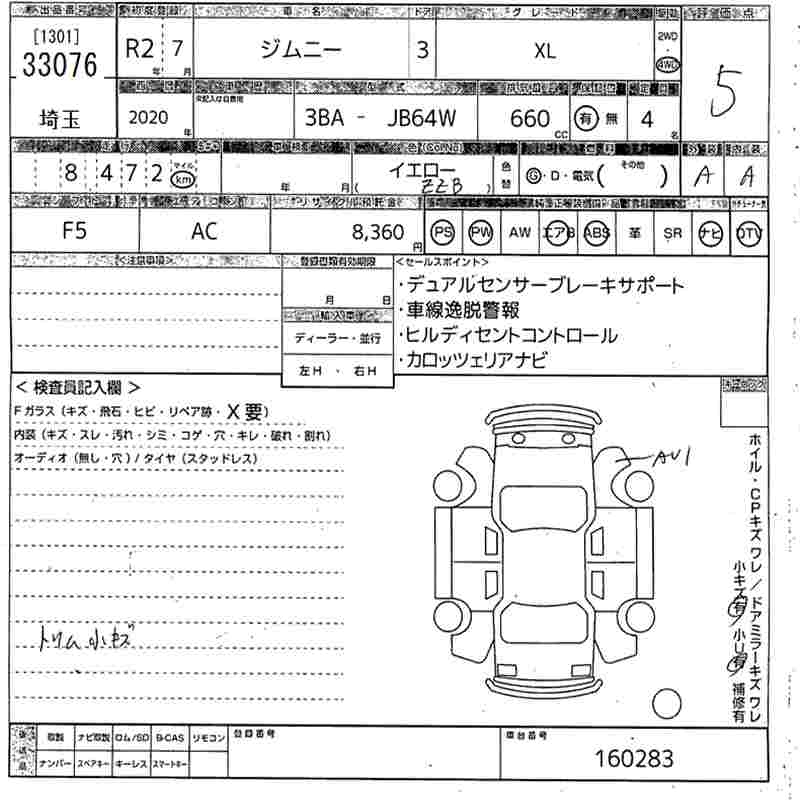 出品番号 初度登録 車名 ドア グレード 駆動 評価点
[1301]
33076
R2年 7月 ジムニー 3 XL 2WD 4WD 5
埼玉
2020年 型式 排気量 定員
車記入は自費用
3BA - JB64W 660cc 有 無 4名
走行 車検 色(Col.No) 色替 燃料 外装 内装
8472 マイル km 年 月 イエロー ( ZZB ) G・D・電気( その他 ) A A
シフト エアコン リサイクル預託金
F5 AC 8,360円 PS PW AW エアB ABS 革 SR ナビ TV
<注意事項> 登録書類有効期限 <セールスポイント>
月 日
・デュアルセンサーブレーキサポート
・車線逸脱警報
・ヒルディセントコントロール
・カロッツェリアナビ
輸入車
ディーラー・並行
左H・右H
<検査員記入欄>
Fガラス(キズ・飛石・ヒビ・リペア跡・X要)
内装(キズ・スレ・汚れ・シミ・コゲ・穴・キレ・破れ・割れ)
オーディオ(無し・穴)/タイヤ(スタッドレス)
トリム小キズ
AU1
ホイル・CPキズ ワレ/ドアミラーキズ ワレ
小キズ有/小U有 補修有
後送品 取説 ナビ取説 ロム/SD B-CAS リモコン 登録番号 車台番号
ナンバー スペアキー キーレス スマートキー
160283